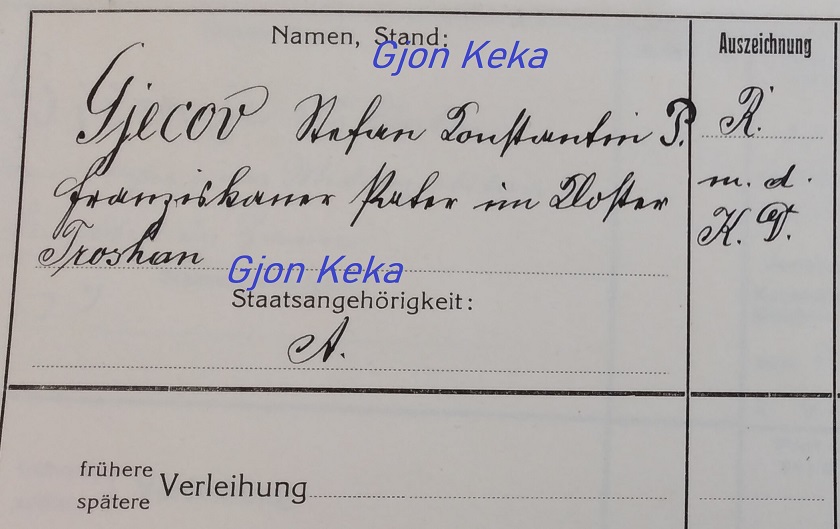 Namen, Stand:
Gjon Keka
Auszeichnung
Gjecov Stefan Konstantin P.
R.
Franziskaner Pater im Kloster
m. d.
Troshan
K. D.
Gjon Keka
Staatsangehörigkeit:
A.
frühere
spätere
Verleihung